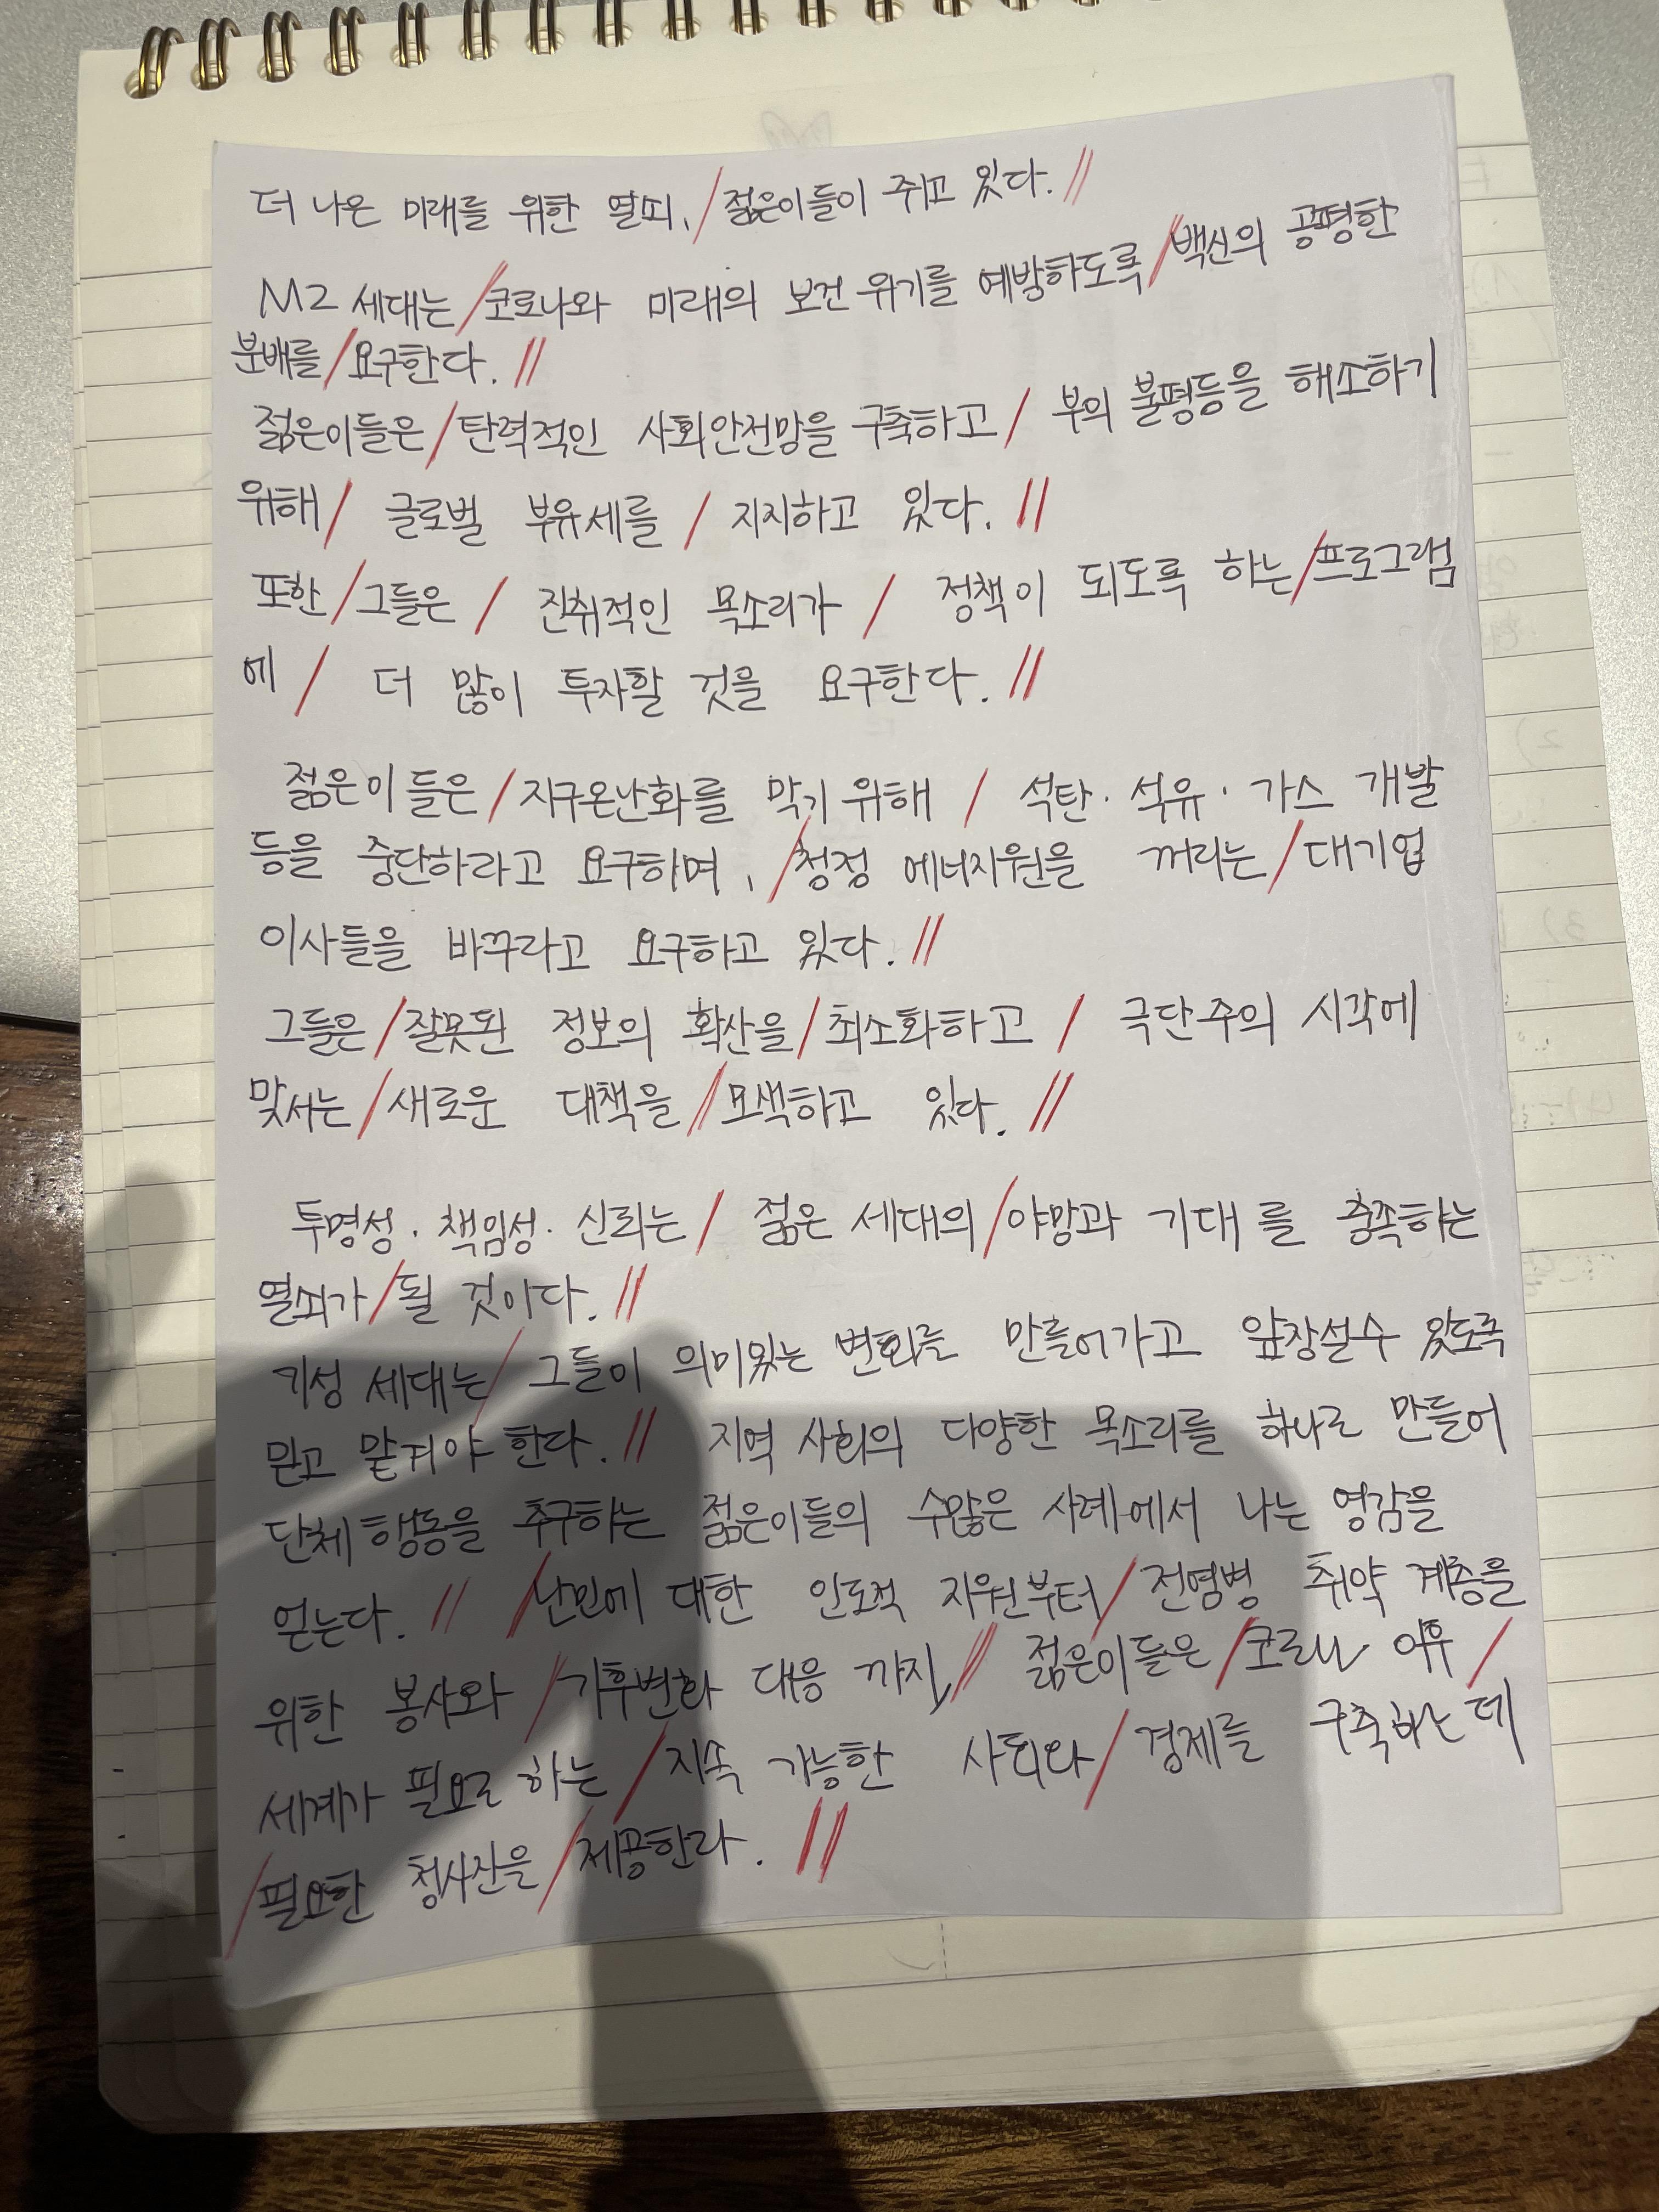 더 나은 미래를 위한 열쇠, / 젊은이들이 쥐고 있다. //
MZ 세대는 / 코로나와 미래의 보건 위기를 예방하도록 / 백신의 공평한
분배를 / 요구한다. //
젊은이들은 / 탄력적인 사회안전망을 구축하고 / 부의 불평등을 해소하기
위해 / 글로벌 부유세를 / 지지하고 있다. //
또한 / 그들은 / 진취적인 목소리가 / 정책이 되도록 하는 / 프로그램
에 / 더 많이 투자할 것을 요구한다. //
젊은이들은 / 지구온난화를 막기 위해 / 석탄·석유·가스 개발
등을 중단하라고 요구하며, / 청정 에너지원을 꺼리는 / 대기업
이사들을 바꾸라고 요구하고 있다. //
그들은 / 잘못된 정보의 확산을 / 최소화하고 / 극단주의 시각에
맞서는 / 새로운 대책을 // 모색하고 있다. //
투명성·책임성·신뢰는 / 젊은 세대의 / 야망과 기대를 충족하는
열쇠가 / 될 것이다. //
기성 세대는 / 그들이 의미있는 변화를 만들어가고 앞장설수 있도록
믿고 맡겨야 한다. // 지역 사회의 다양한 목소리를 하나로 만들어
단체 행동을 추구하는 젊은이들의 수많은 사례에서 나는 영감을
얻는다. // / 난민에 대한 인도적 지원부터 / 전염병 취약 계층을
위한 봉사와 / 기후변화 대응 까지, // 젊은이들은 / 코로나 이후 /
세계가 필요로 하는 / 지속 가능한 사회와 / 경제를 구축하는데
/ 필요한 청사진을 / 제공한다. //